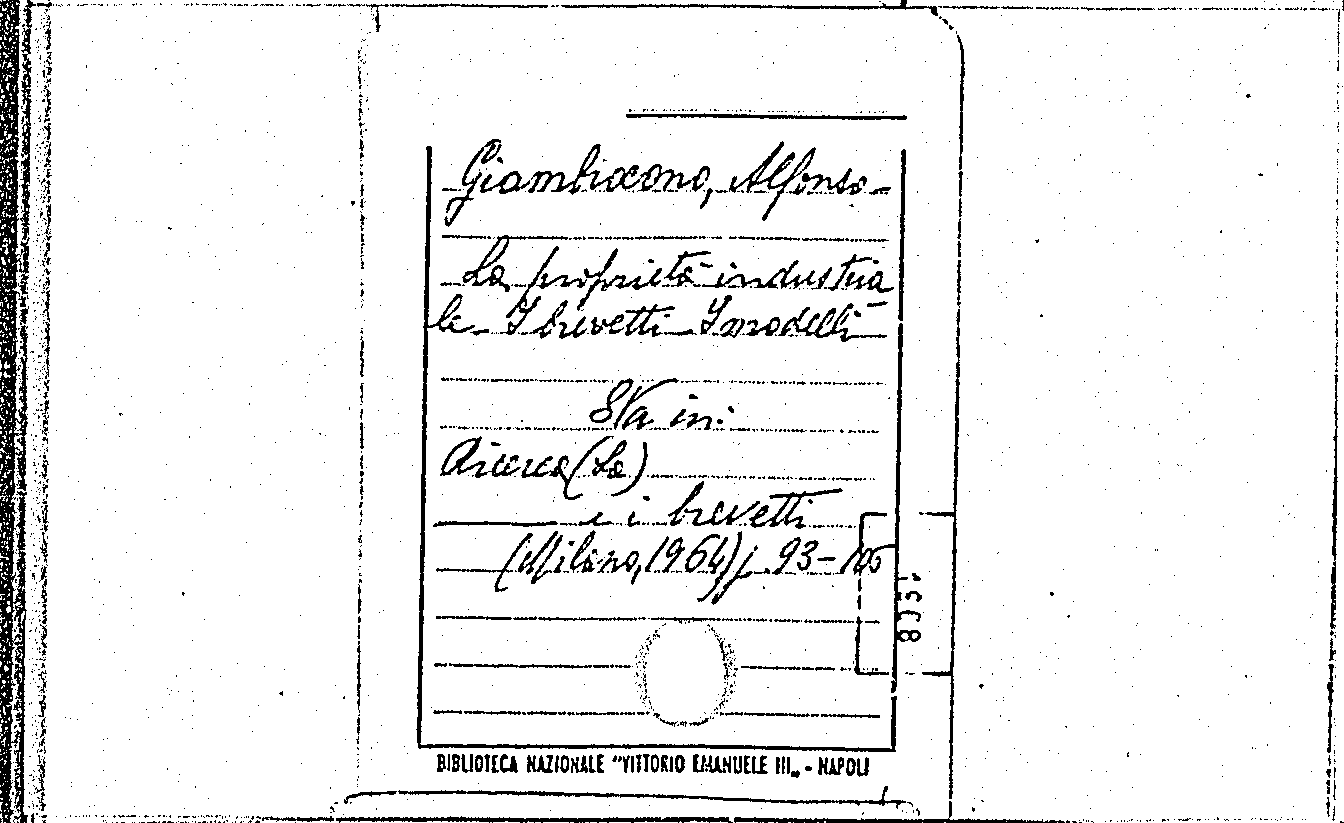 Giambrocono, Alfonso -
La proprietà industria
le - I brevetti I modelli
Sta in:
Ricerca (La)
e i brevetti
(Milano, 1964) p. 93-105
BIBLIOTECA NAZIONALE "VITTORIO EMANUELE III" - NAPOLI